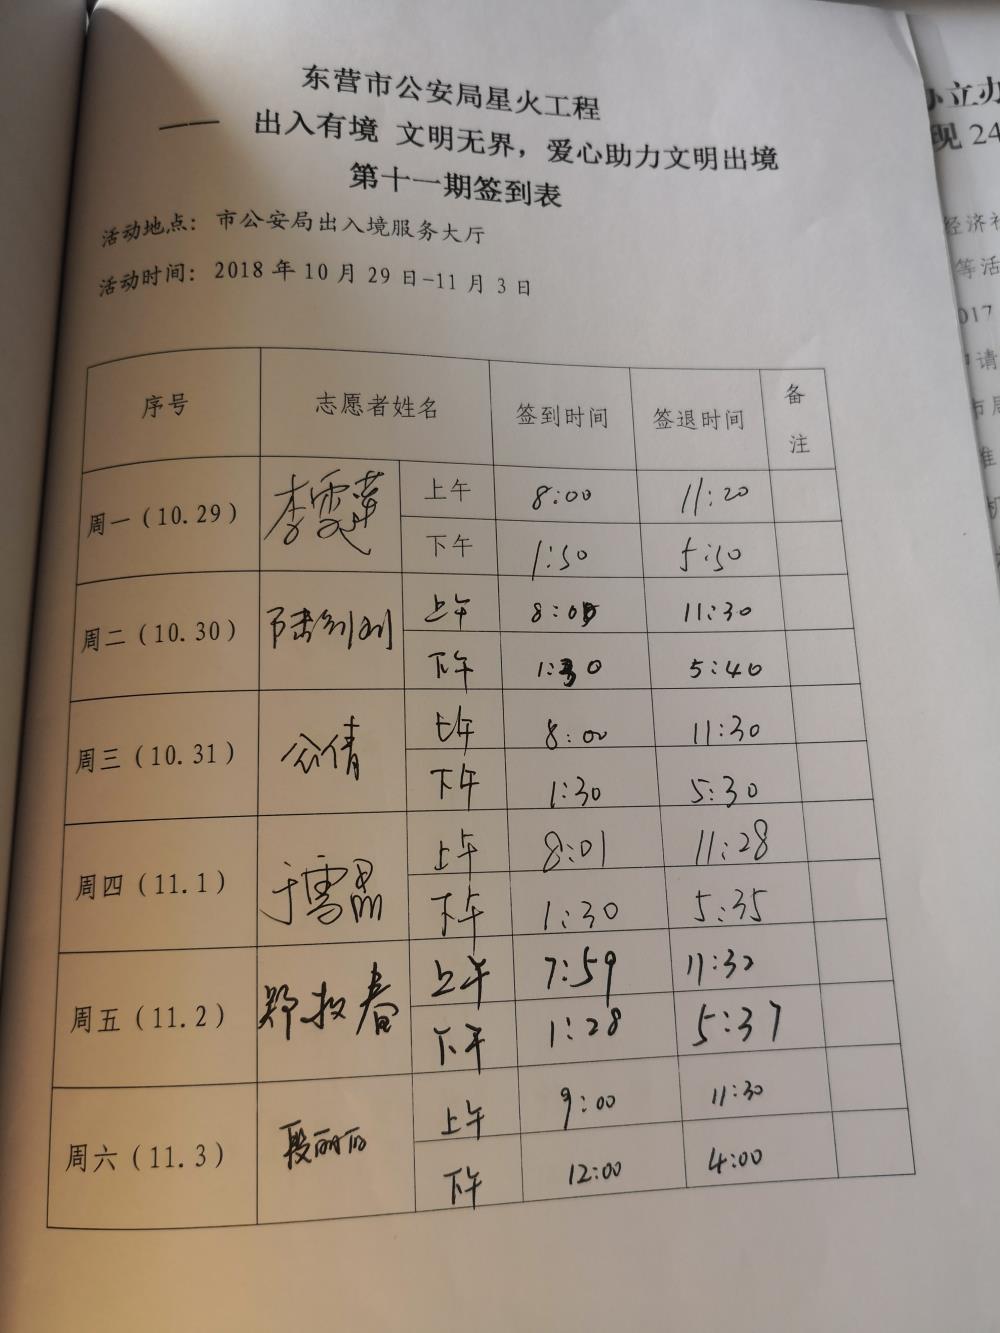 东营市公安局星火工程
—— 出入有境 文明无界，爱心助力文明出境
第十一期签到表
活动地点：市公安局出入境服务大厅
活动时间：2018年10月29日-11月3日
序号 志愿者姓名 签到时间 签退时间 备注
周一（10.29） 李雯 上午 8:00 11:20
下午 1:50 5:50
周二（10.30） 上午 8:00 11:30
下午 1:30 5:40
周三（10.31） 公倩 上午 8:00 11:30
下午 1:30 5:30
周四（11.1） 于雪晶 上午 8:01 11:28
下午 1:30 5:35
周五（11.2） 郑 春 上午 7:59 11:32
下午 1:28 5:37
周六（11.3） 段丽丽 上午 9:00 11:30
下午 12:00 4:00
立办
现 24
经济社
等活
017
申请
市局
准